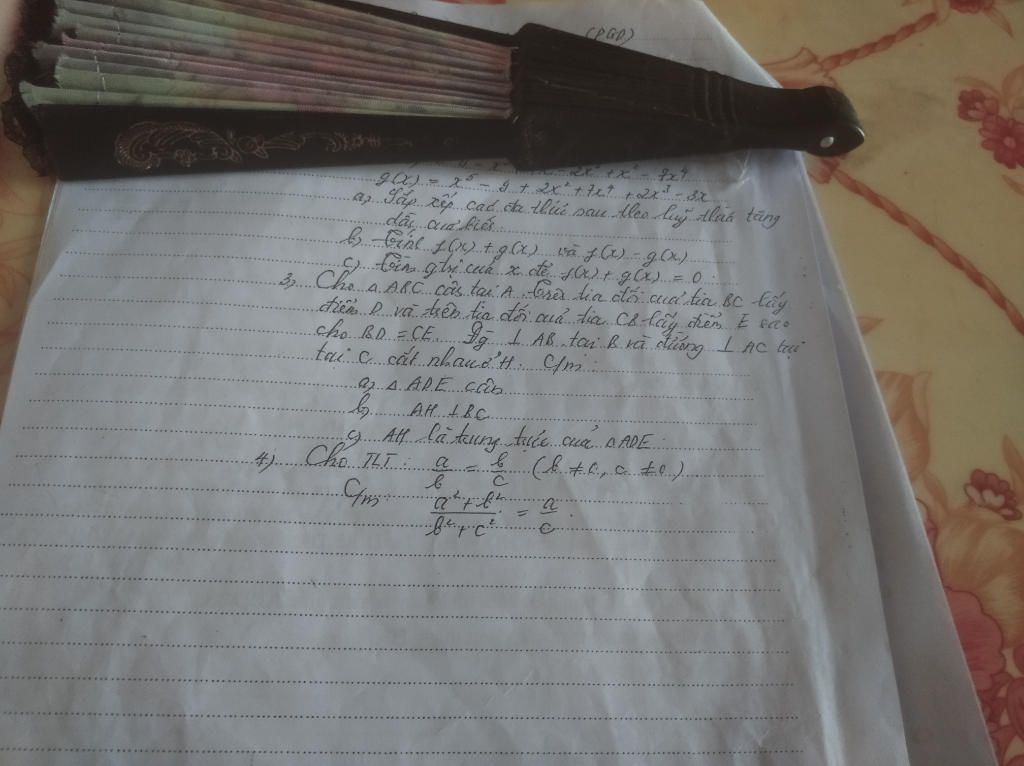 (PGD)
- 2x² + x² - 7x⁴
g(x) = x⁵ - 9 + 2x² + 7x⁴ + 2x³ - 3x
a, Sắp xếp các đa thức sau theo luỹ thừa tăng
dần của biến.
b, Tính f(x) + g(x) và f(x) - g(x)
c, Tìm gtrị của x để f(x) + g(x) = 0.
3, Cho △ABC cân tại A. Trên tia đối của tia BC lấy
điểm D và trên tia đối của tia CB lấy điểm E sao
cho BD = CE. Đg ⊥ AB tại B và đường ⊥ AC tại
tại C cắt nhau ở H. C/m:
a, △ADE cân
b, AH ⊥ BC
c, AH là trung trực của △ADE.
4, Cho TLT: a/b = b/c (b ≠ 0, c ≠ 0)
C/m: (a² + b²)/(b² + c²) = a/c.